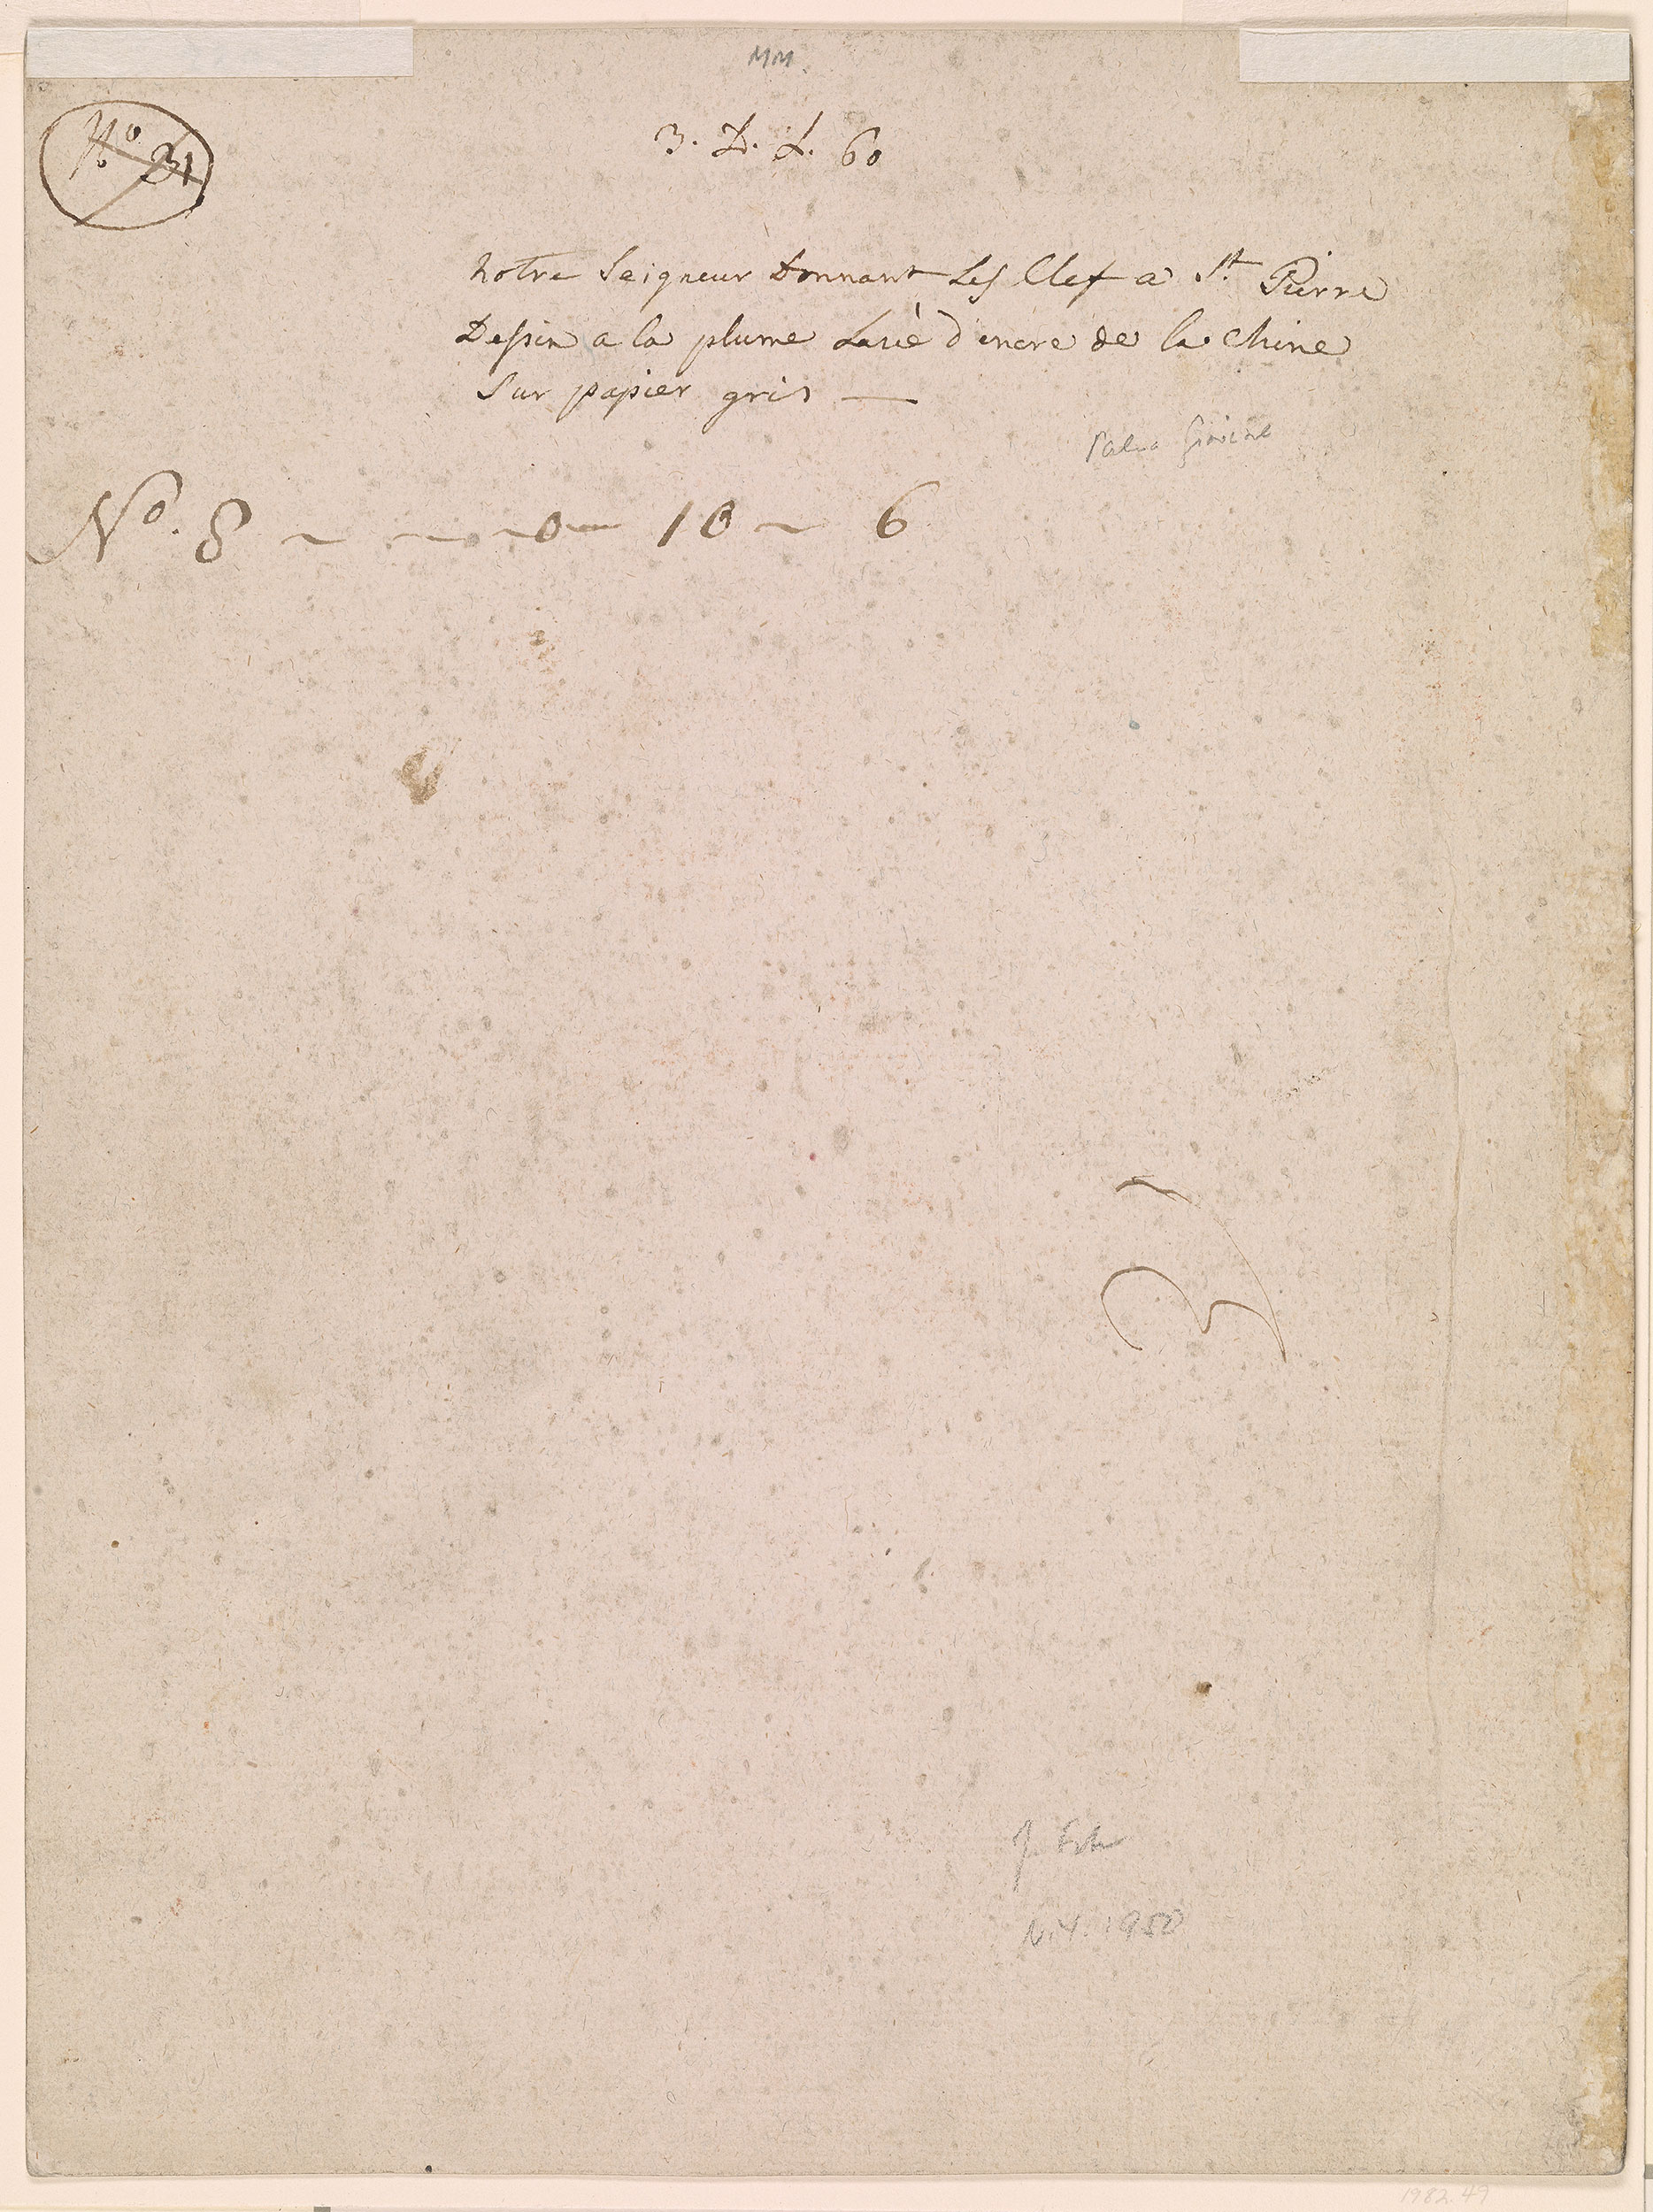 MM
No 31
3. D. L. 60
Notre Seigneur Donnant Les Clef a St. Pierre
Dessin a la plume Lavé d'encre de la Chine
Sur papier gris —
Palma Giovine
No. 8 ~ ~ ~ 0 — 10 ~ 6
J.
N.Y. 1950
1982.49